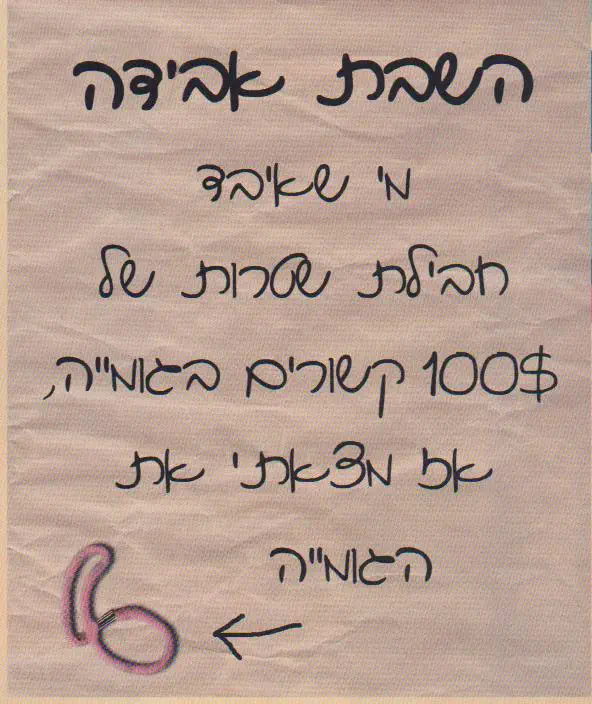 השבת אבידה
מי שאיבד
חבילת שטרות של
100$ קשורים בגומייה,
אז מצאתי את
הגומייה